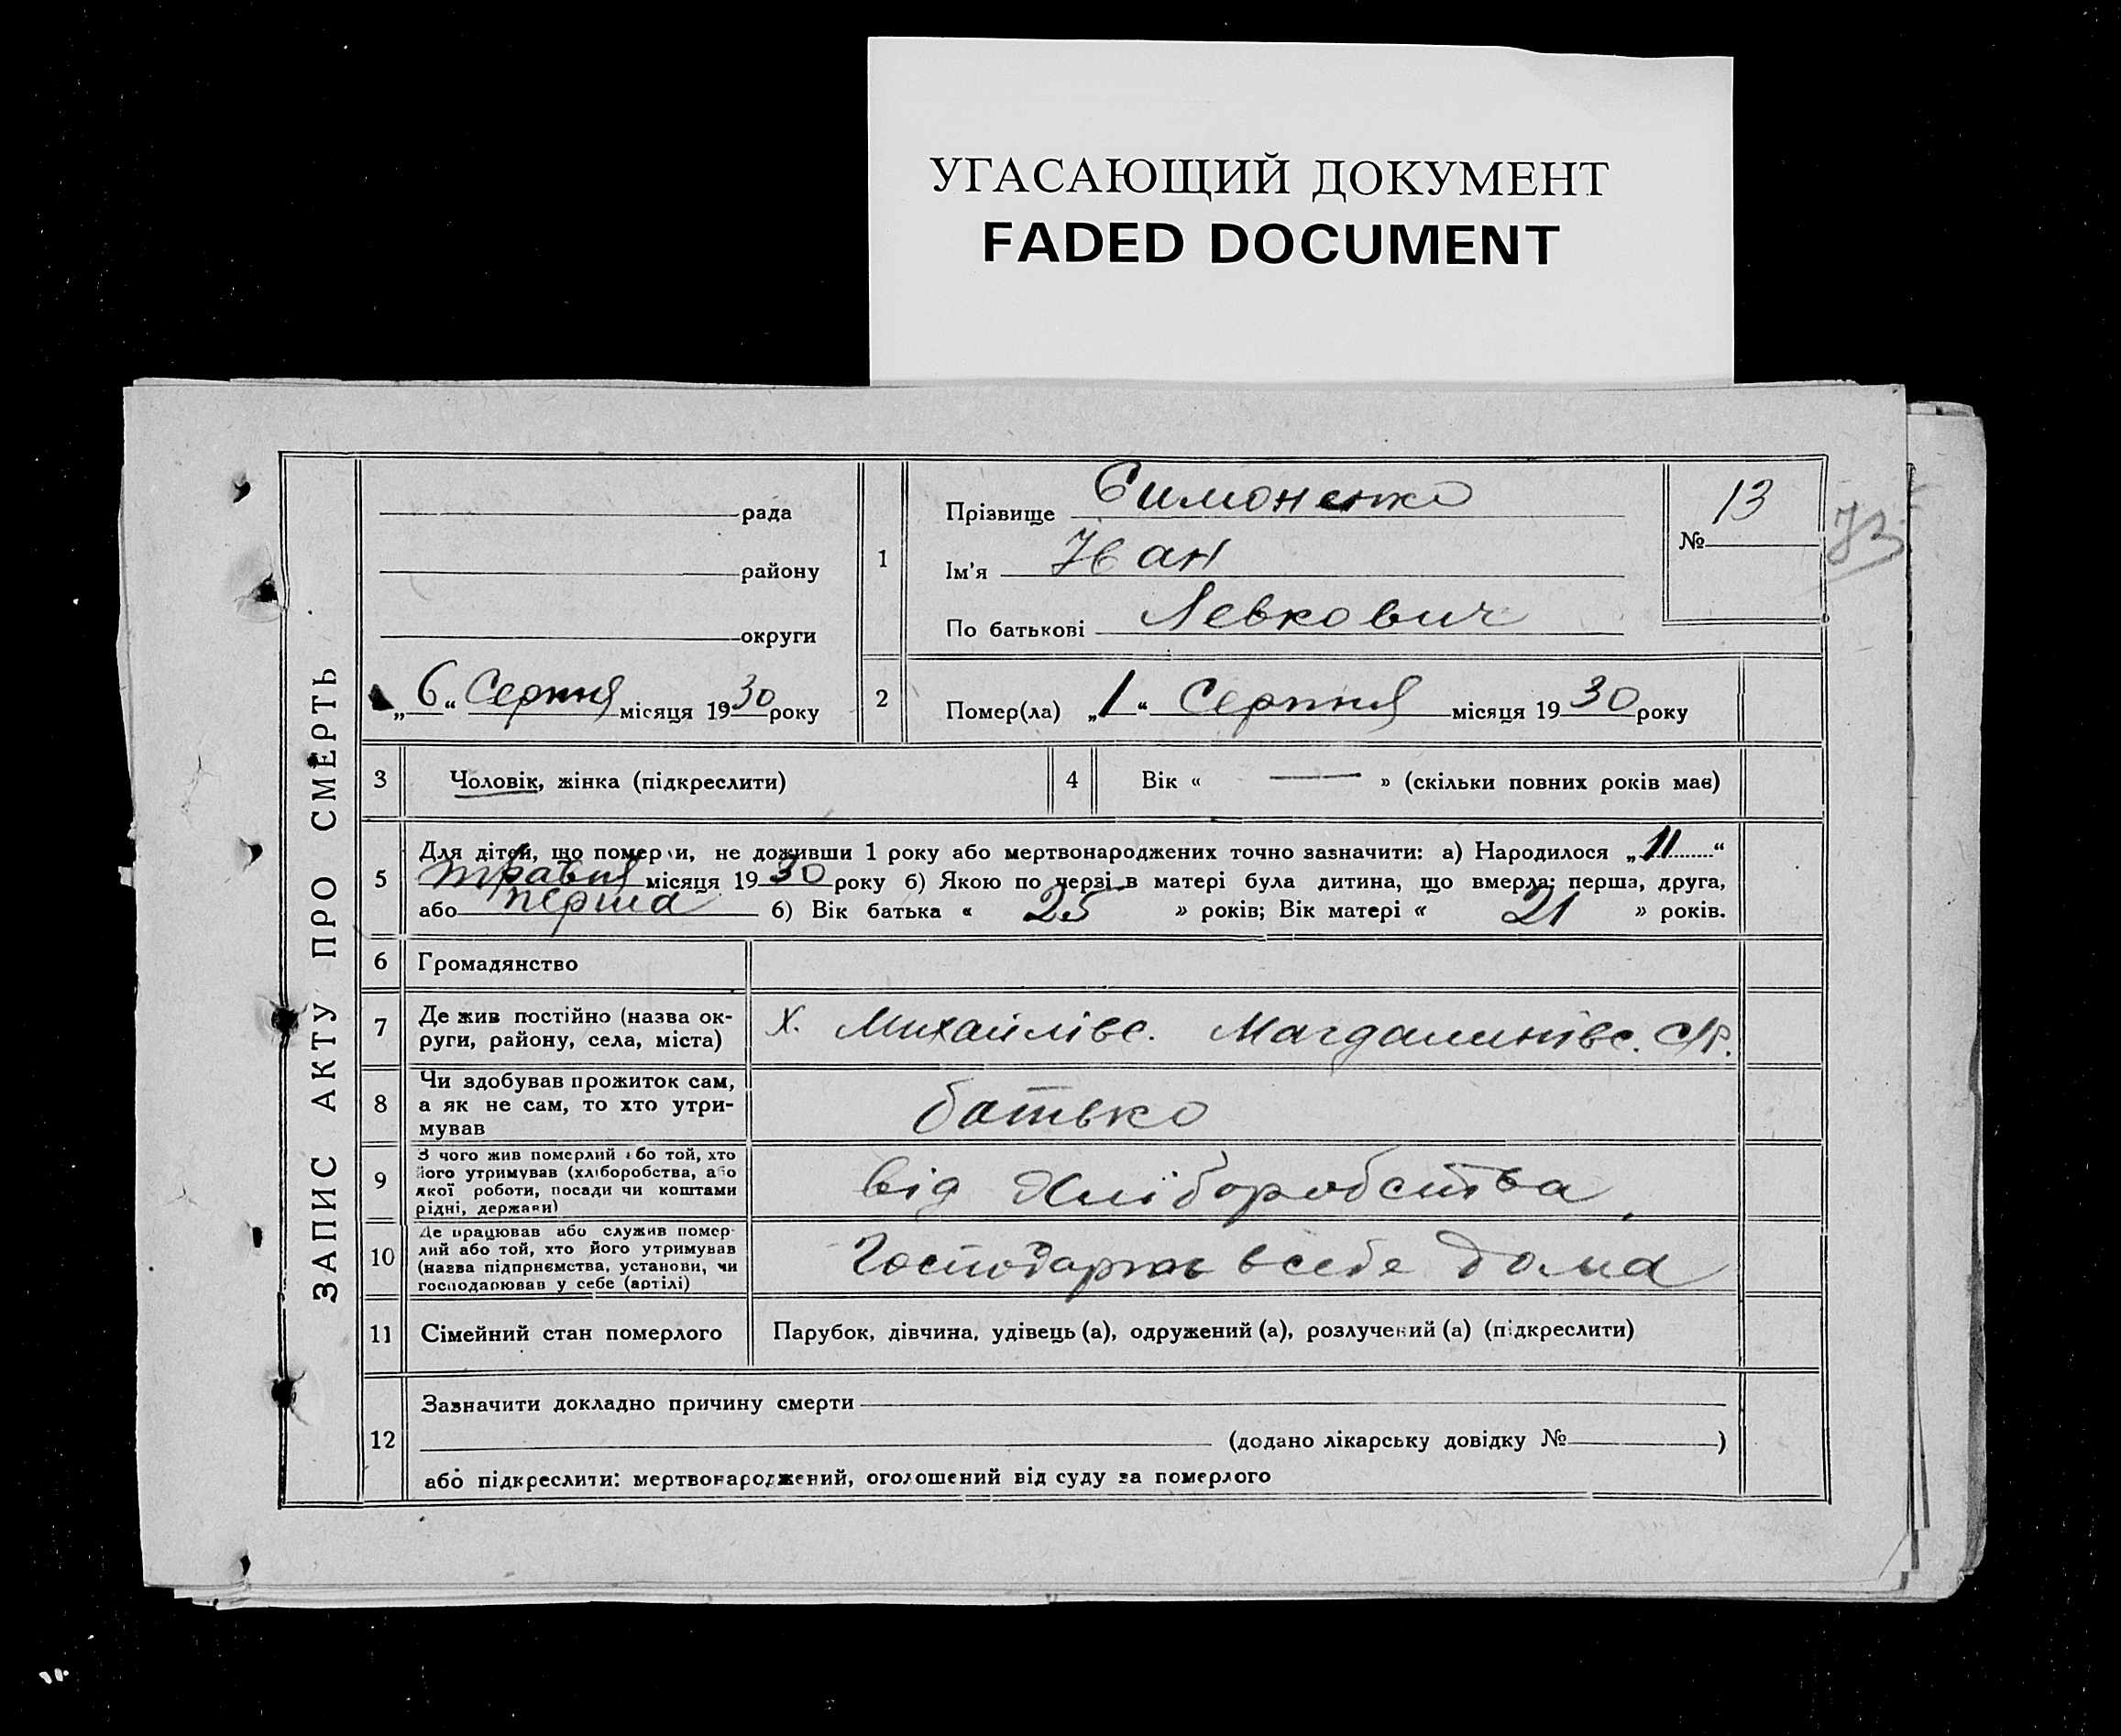 УГАСАЮЩИЙ ДОКУМЕНТ
FADED DOCUMENT
ЗАПИС АКТУ ПРО СМЕРТЬ
рада
району
округи
„6“ Серпня місяця 1930 року
1
Прізвище Симоненко
Ім'я Іван
По батькові Левкович
№ 13
73
2
Помер(ла) „1“ Серпня місяця 1930 року
3 Чоловік, жінка (підкреслити)
4 Вік « — » (скільки повних років має)
5 Для дітей, що померли, не доживши 1 року або мертвонароджених точно зазначити: а) Народилося „11“
травня місяця 1930 року б) Якою по черзі в матері була дитина, що вмерла: перша, друга,
або перша б) Вік батька « 25 » років; Вік матері « 21 » років.
6 Громадянство
7 Де жив постійно (назва округи, району, села, міста) Х. Михайлівс. Магдалинівс. С/Р.
8 Чи здобував прожиток сам,
а як не сам, то хто утри-
мував
батько
9 З чого жив померлий або той, хто
його утримував (хліборобства, або
якої роботи, посади чи коштами
рідні, держави)
від Хліборобства
10 Де працював або служив помер-
лий або той, хто його утримував
(назва підприємства, установи, чи
господарював у себе (артілі)
всебе дома
11 Сімейний стан померлого Парубок, дівчина, удівець (а), одружений (а), розлучений (а) (підкреслити)
12 Зазначити докладно причину смерти
(додано лікарську довідку № )
або підкреслити: мертвонароджений, оголошений від суду за померлого